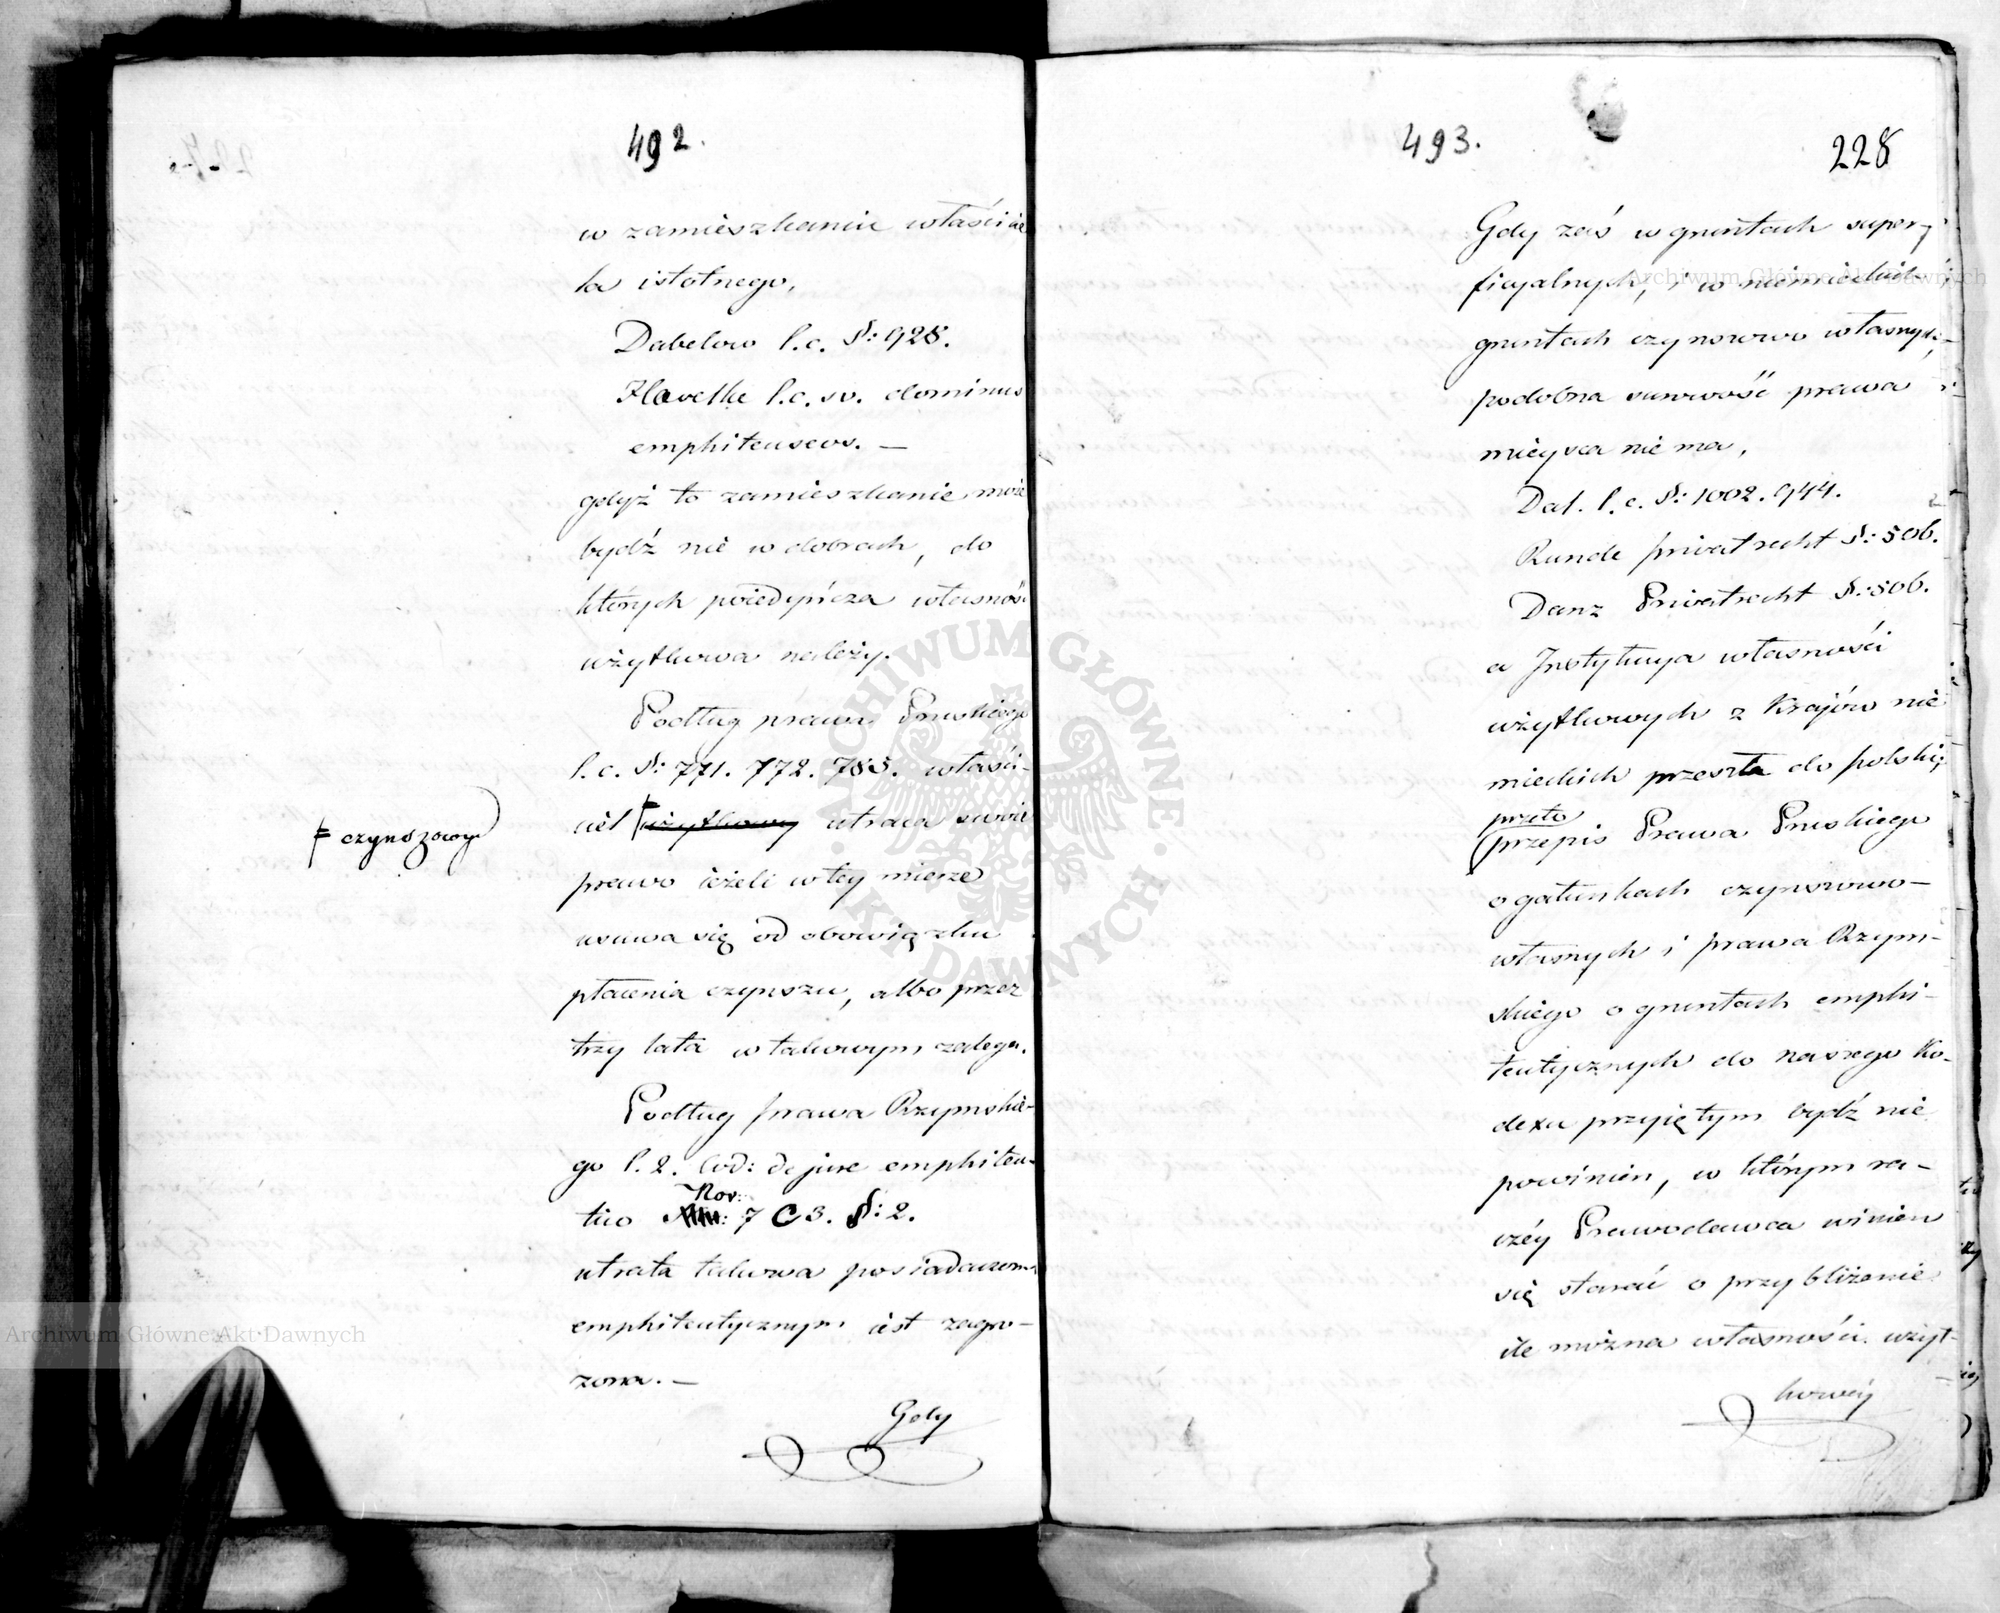 492.
w zamieszkaniu właścicie
la istotnego,
Dabelow l.c. §: 928.
l.c. sv. dominus
emphiteuseos. —
gdyż to zamieszkanie może
bydź nie w dobrach, do
których poiedyńcza własność
użytkowa należy.
Podług prawa Pruskiego
l.c. §: 771. 772. 785. właści-
ciel użytkowy utraca swoie
czynszowy
prawo ieżeli w tey mierze
usuwa się od obowiązku
płacenia czynszu, albo przez
trzy lata w takowym zalega.
Podług prawa Rzymskie-
go l. 2. Cod: de jure emphiteu-
tico Nov: 7 C 3. §: 2.
utrata takowa posiadaczom
emphiteutycznym iest zagro-
żona. —
Gdy
493.
228
Gdy zaś w gruntach super-
ficyalnych, i w niemieckich
gruntach czynszowo własnych,
podobna surowość prawa
mieysca nie ma,
Dab. l.c. §: 1002. 944.
Runde privatrecht §: 506.
Danz Privatrecht §: 506.
a Instytucya własności
użytkowych z Kraiów nie
mieckich przeszła do polskiey,
przeto
przepis Prawa Pruskiego
o gatunkach czynszowo-
własnych i prawa Rzym-
skiego o gruntach emphi-
teutycznych do naszego Ko-
dexu przyiętym bydź nie
powinien, w którym ra-
czéy Prawodawca winien
się starać o przybliżenie
ile można własności użyt-
kowéy
Archiwum Główne Akt Dawnych
Archiwum Główne Akt Dawnych
ARCHIWUM GŁÓWNE AKT DAWNYCH